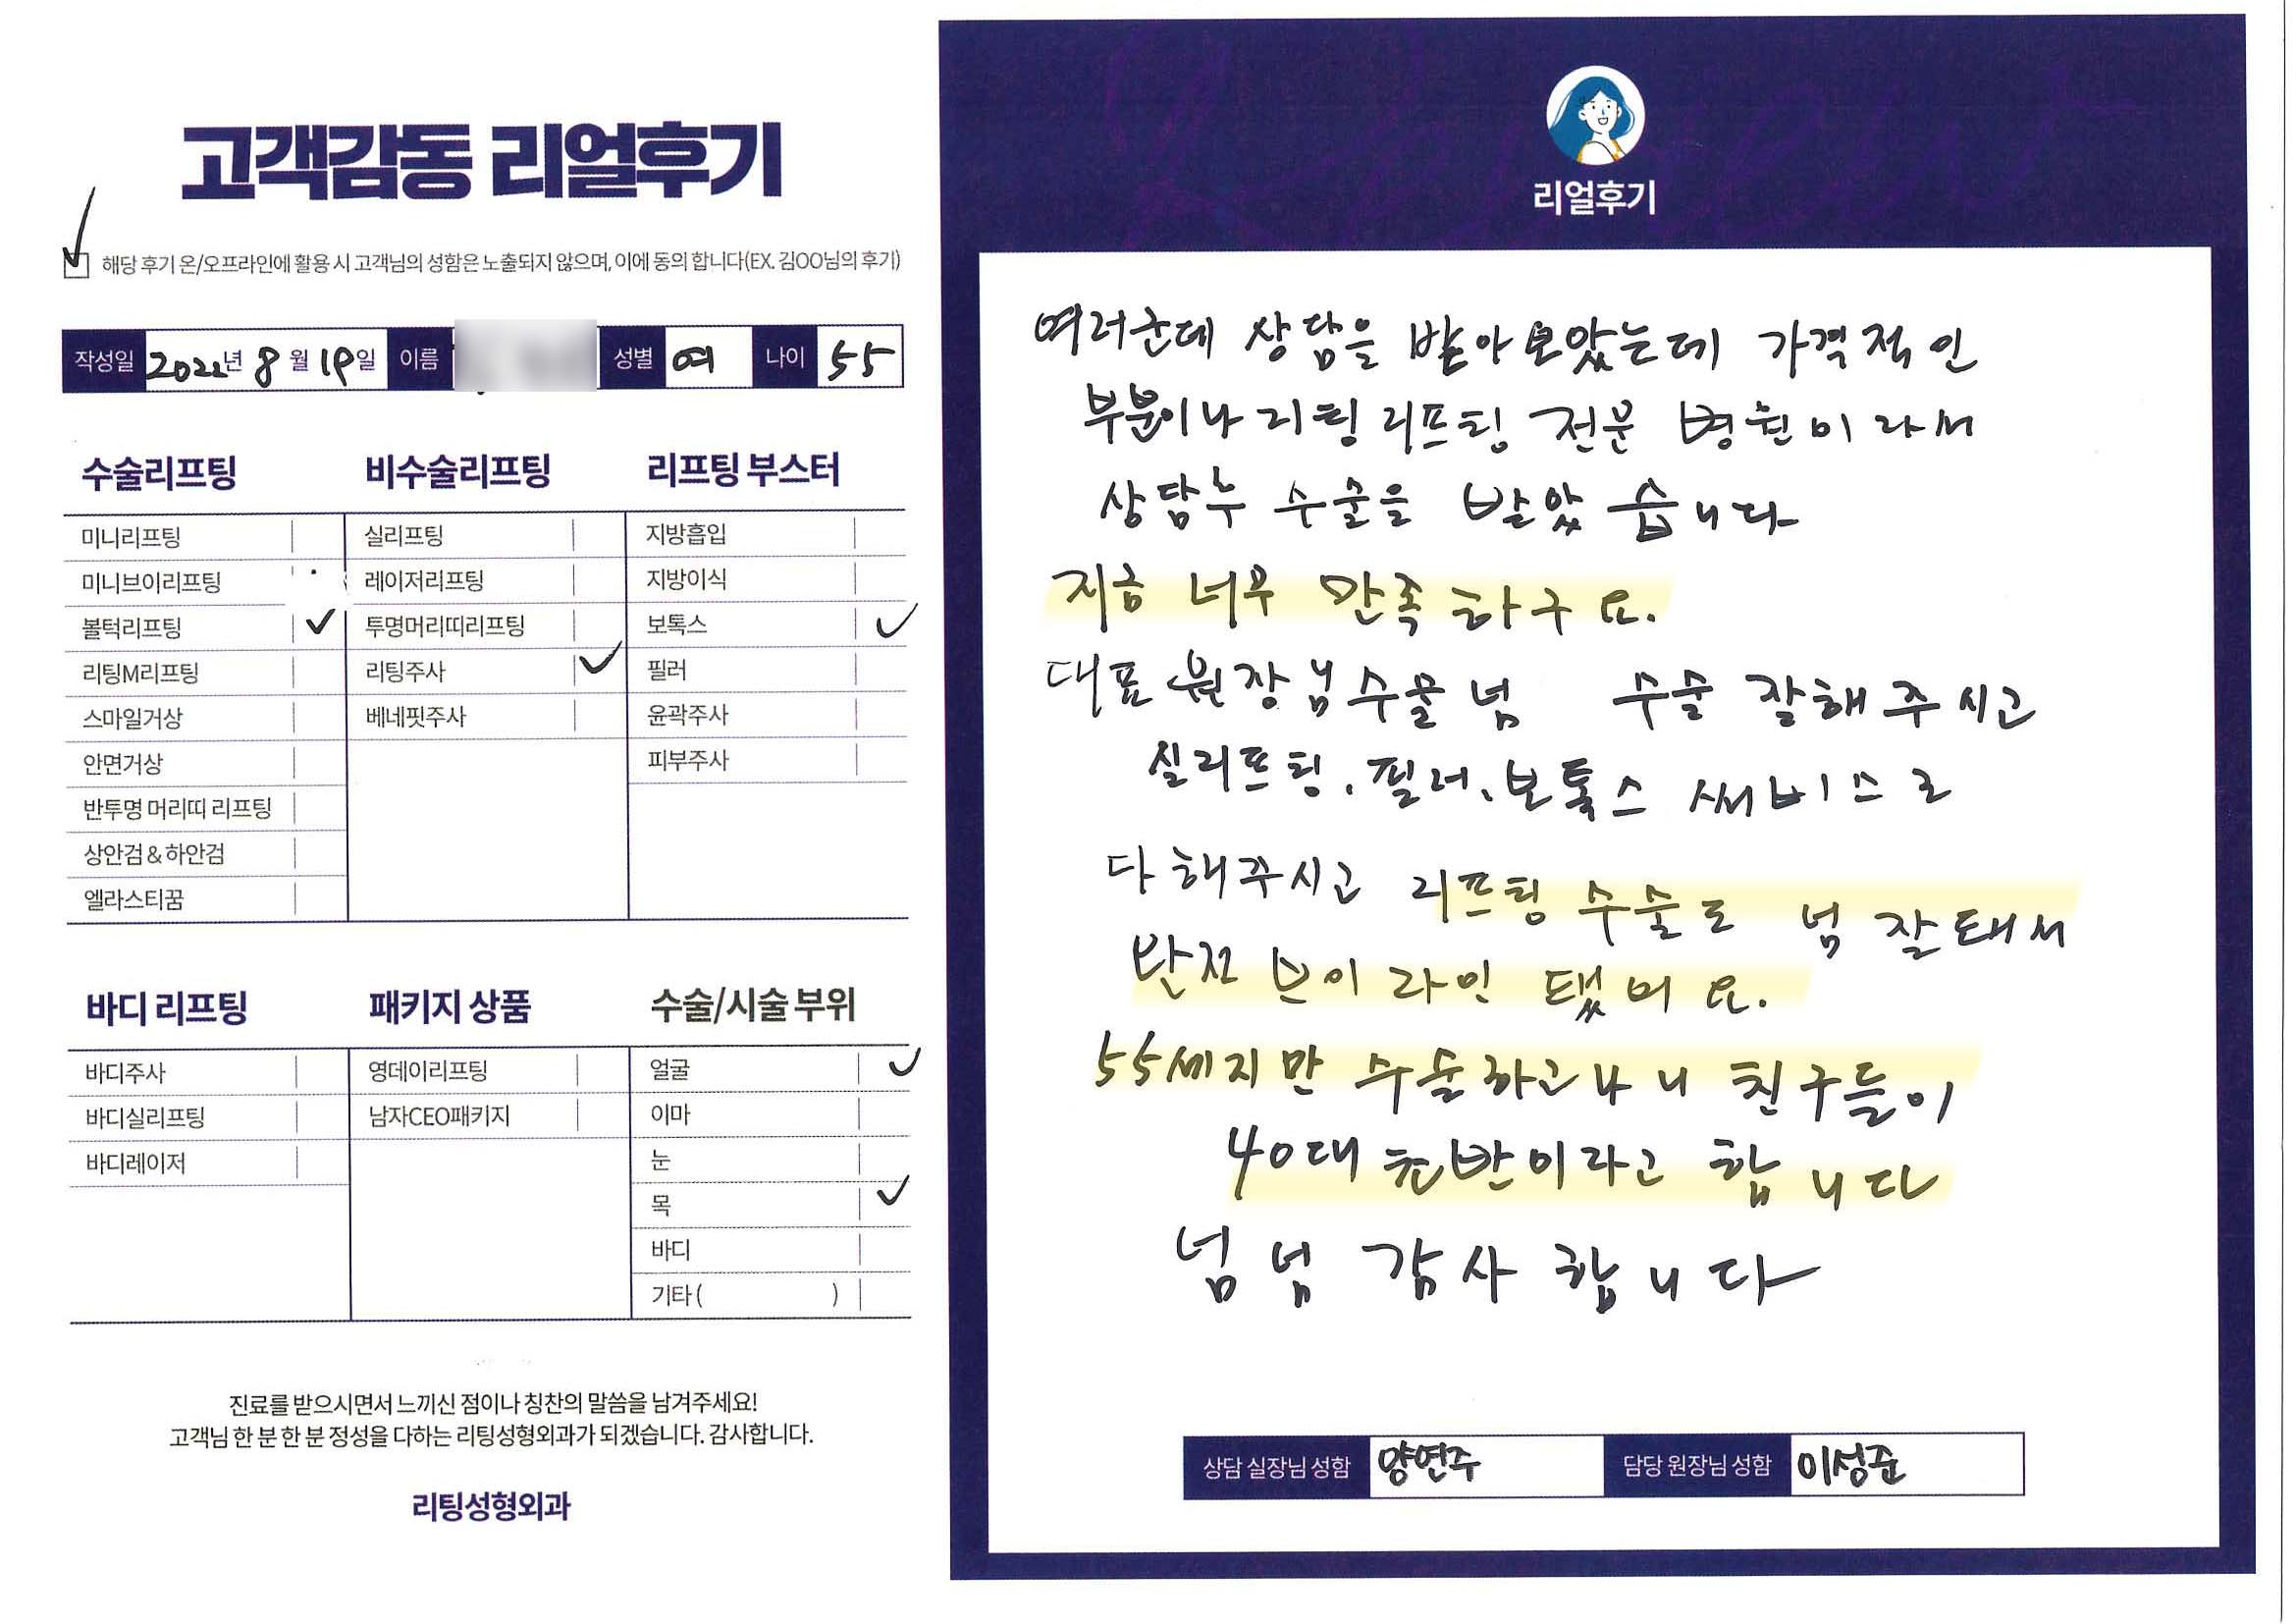 고객감동 리얼후기
해당 후기 온/오프라인에 활용 시 고객님의 성함은 노출되지 않으며, 이에 동의 합니다(EX. 김OO님의 후기)
작성일 2022년 8월 19일 이름 성별 여 나이 55
수술리프팅
미니리프팅
미니브이리프팅
볼턱리프팅 ✓
리팅M리프팅
스마일거상
안면거상
반투명 머리띠 리프팅
상안검 & 하안검
엘라스티꿈
비수술리프팅
실리프팅
레이저리프팅
투명머리띠리프팅
리팅주사 ✓
베네핏주사
리프팅 부스터
지방흡입
지방이식
보톡스 ✓
필러
윤곽주사
피부주사
바디 리프팅
바디주사
바디실리프팅
바디레이저
패키지 상품
영데이리프팅
남자CEO패키지
수술/시술 부위
얼굴 ✓
이마
눈
목 ✓
바디
기타 ( )
진료를 받으시면서 느끼신 점이나 칭찬의 말씀을 남겨주세요!
고객님 한 분 한 분 정성을 다하는 리팅성형외과가 되겠습니다. 감사합니다.
리팅성형외과
리얼후기
여러군데 상담을 받아보았는데 가격적인
부분이나 리팅 리프팅 전문 병원이라서
상담후 수술을 받았습니다
지금 너무 만족하구요.
대표원장님 수술 넘 수술 잘해주시고
실리프팅, 필러, 보톡스 써비스로
다 해주시고 리프팅 수술로 넘 잘돼서
완전 브이라인 됐어요.
55세지만 수술하고나니 친구들이
40대 초반이라고 합니다
넘넘 감사합니다
상담 실장님 성함 양연주 담당 원장님 성함 이성준